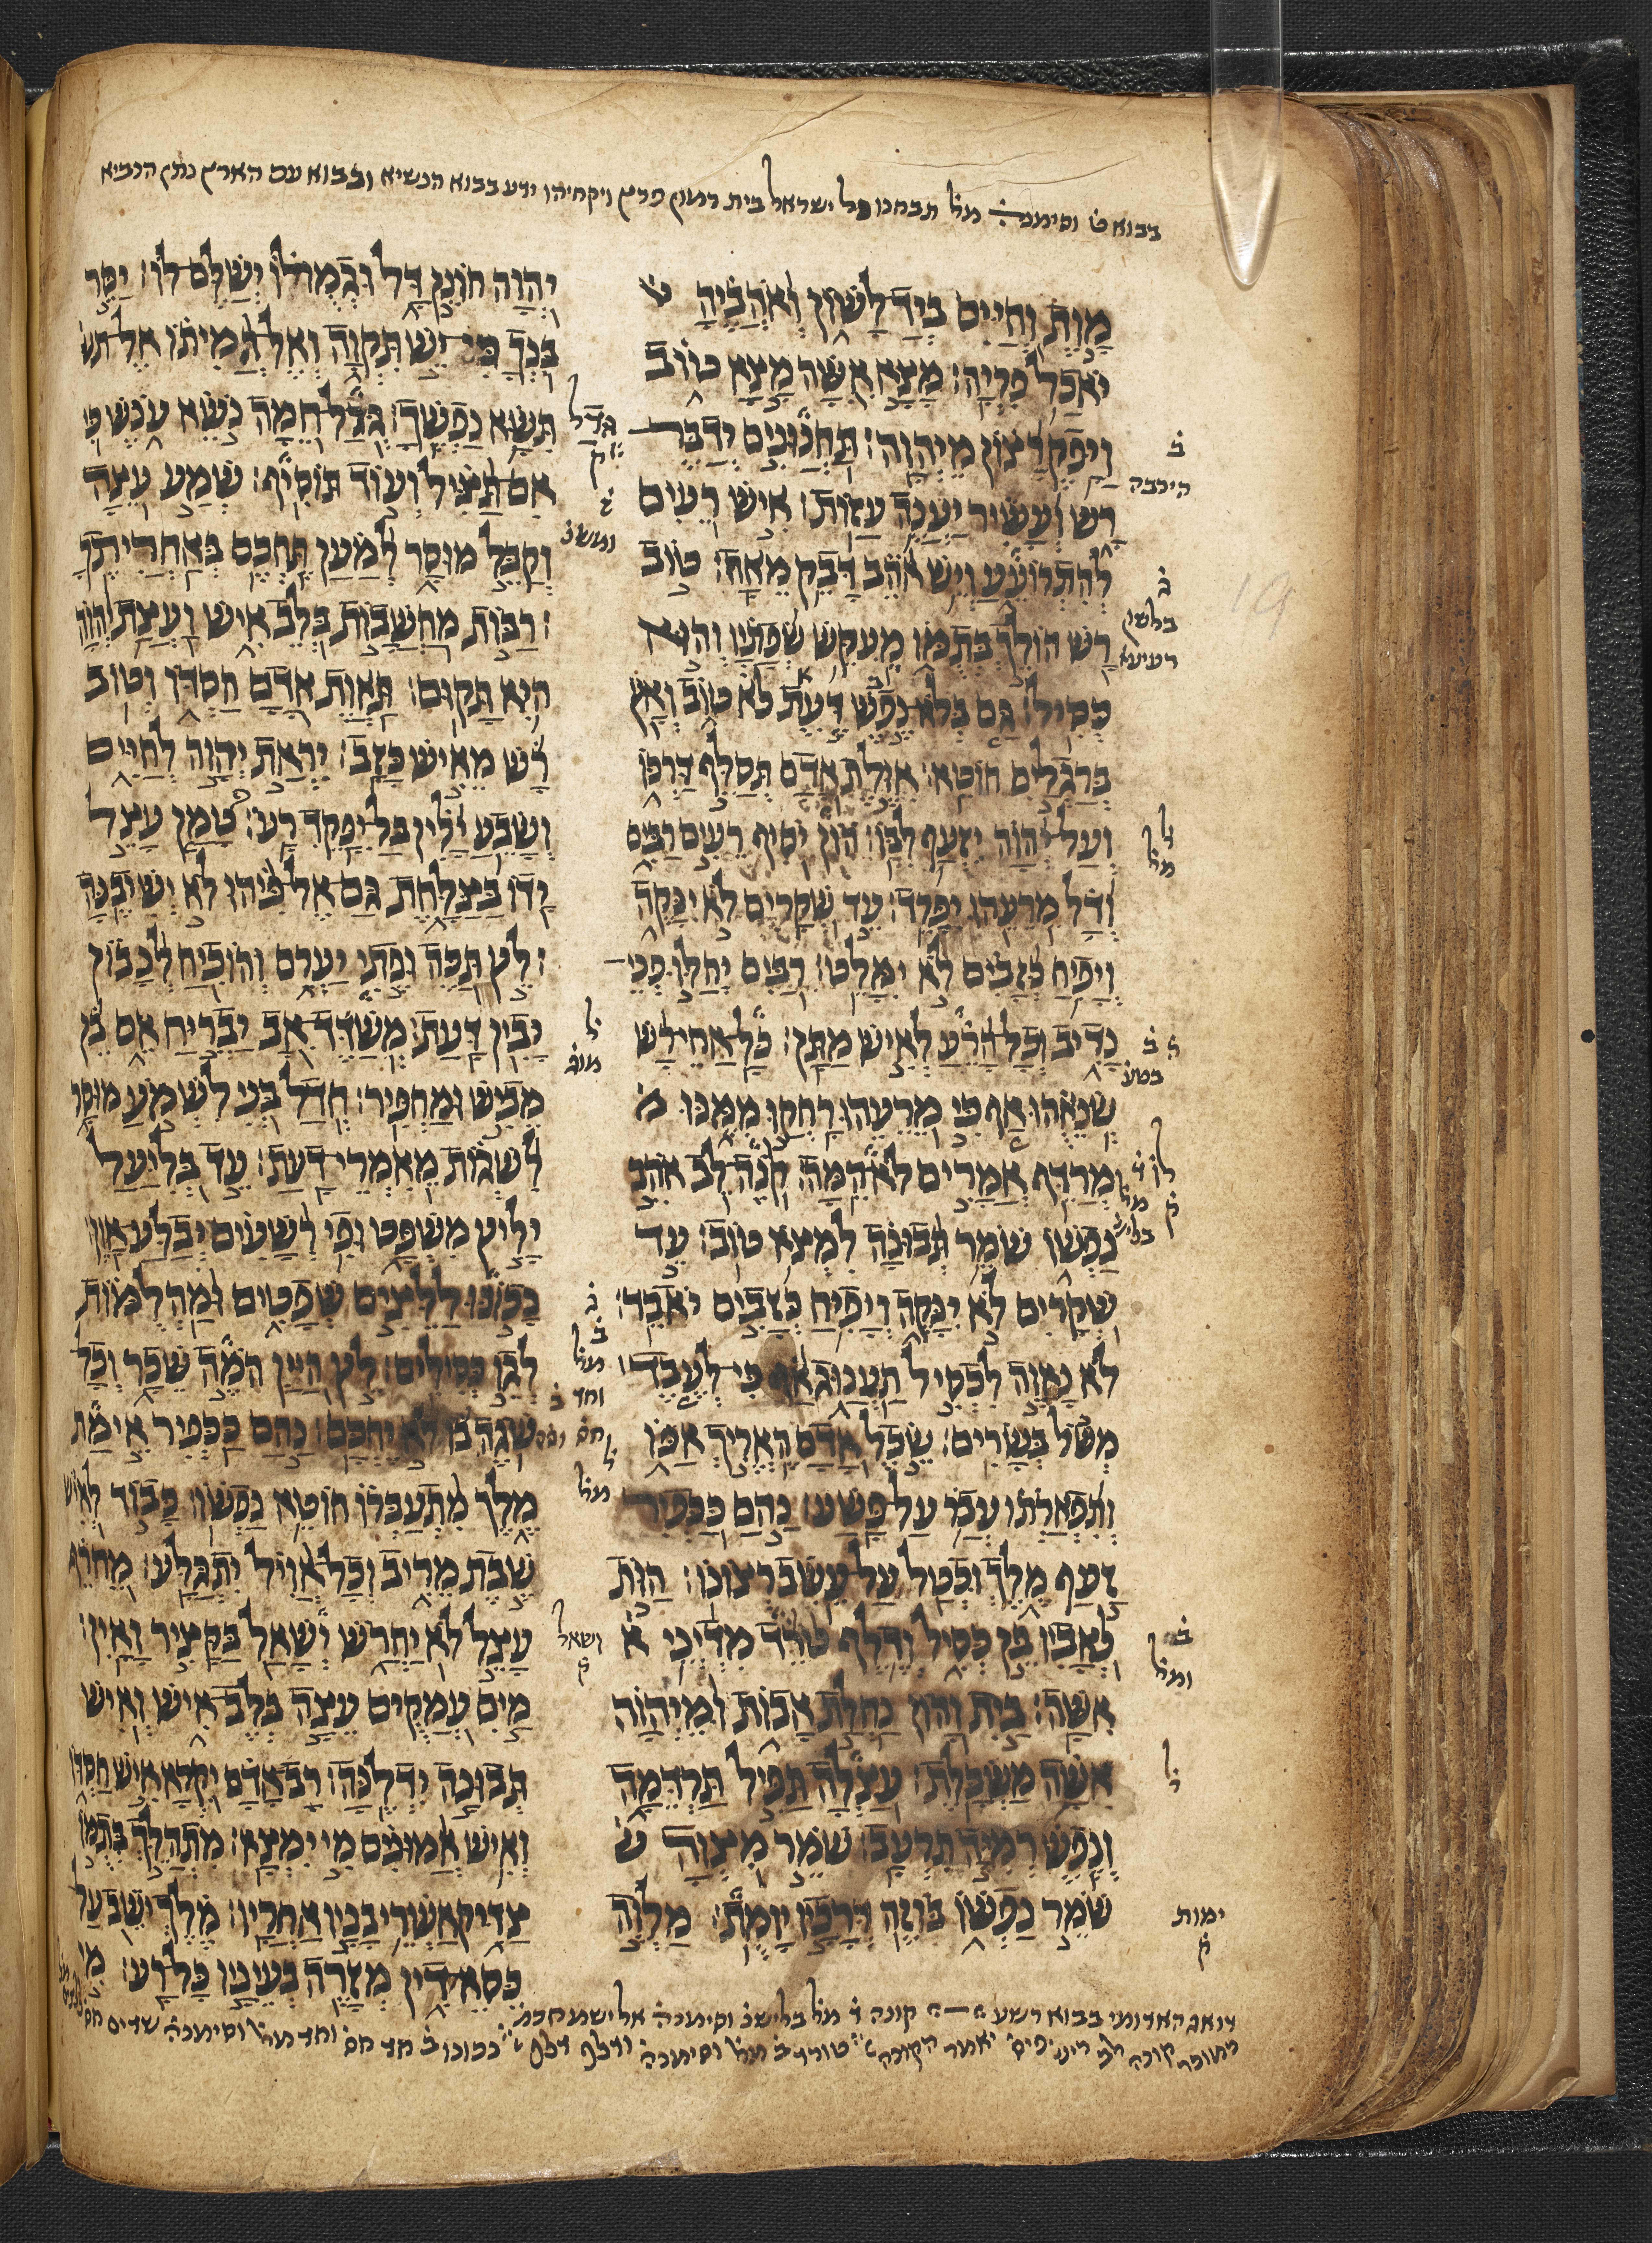 בבוא ט וסימנה מל תבחנו כל ישראל בית רמון פרץ ויקחיהו ידע בבוא הנשיא ובבוא עם הארץ נתן הנביא
מות וחיים ביד לשון ואהביה
יאכל פריה׃ מצא אשה מצא טוב
ויפק רצון מיהוה׃ תחנונים ידבר
רש ועשיר יענה עזות׃ איש רעים
להתרועע ויש אהב דבק מאח׃ טוב
רש הולך בתמו מעקש שפתיו והוא
כסיל׃ גם בלא נפש דעת לא טוב ואץ
ברגלים חוטא׃ אולת אדם תסלף דרכו
ועל יהוה יזעף לבו׃ הון יסיף רעים רבים
ודל מרעהו יפרד׃ עד שקרים לא ינקה
ויפיח כזבים לא ימלט׃ רבים יחלו פני
נדיב וכל הרע לאיש מתן׃ כל אחי רש
שנאהו אף כי מרעהו רחקו ממנו
מרדף אמרים לא המה׃ קנה לב אהב
נפשו שמר תבונה למצא טוב׃ עד
שקרים לא ינקה ויפיח כזבים יאבד׃
לא נאוה לכסיל תענוג אף כי לעבד
משל בשרים׃ שכל אדם האריך אפו
ותפארתו עבר על פשע׃ נהם ככפיר
זעף מלך וכטל על עשב רצונו׃ הות
לאביו בן כסיל ודלף טרד מדיני
אשה׃ בית והון נחלת אבות ומיהוה
אשה משכלת׃ עצלה תפיל תרדמה
ונפש רמיה תרעב׃ שמר מצוה
שמר נפשו בוזה דרכיו יומת׃ מלוה
יהוה חונן דל וגמולו ישלם לו׃ יסר
בנך כי יש תקוה ואל המיתו אל תש
תשא נפשך׃ גרל חמה נשא ענש כי
אם תציל ועוד תוסיף׃ שמע עצה
וקבל מוסר למען תחכם באחריתך
׃ רבות מחשבות בלב איש ועצת יהוה
היא תקום׃ תאות אדם חסדו וטוב
רש מאיש כזב׃ יראת יהוה לחיים
ושבע ילין בל יפקד רע׃ טמן עצל
ידו בצלחת גם אל פיהו לא ישיבנה
׃ לץ תכה ופתי יערם והוכיח לנבון
יבין דעת׃ משדד אב יבריח אם בן
מביש ומחפיר׃ חדל בני לשמע מוסר
לשגות מאמרי דעת׃ עד בליעל
יליץ משפט ופי רשעים יבלע און׃
נכונו ללצים שפטים ומהלמות
לגו כסילים׃ לץ היין המה שכר וכל
שגה בו לא יחכם׃ נהם ככפיר אימת
מלך מתעברו חוטא נפשו׃ כבוד לאיש
שבת מריב וכל אויל יתגלע׃ מחרף
עצל לא יחרש ישאל בקציר ואין׃
מים עמקים עצה בלב איש ואיש
תבונה ידלנה׃ רב אדם יקרא איש חסדו
ואיש אמונים מי ימצא׃ מתהלך בתמו
צדיק אשרי בניו אחריו׃ מלך יושב על
כסא דין מזרה בעיניו כל רע׃ מי